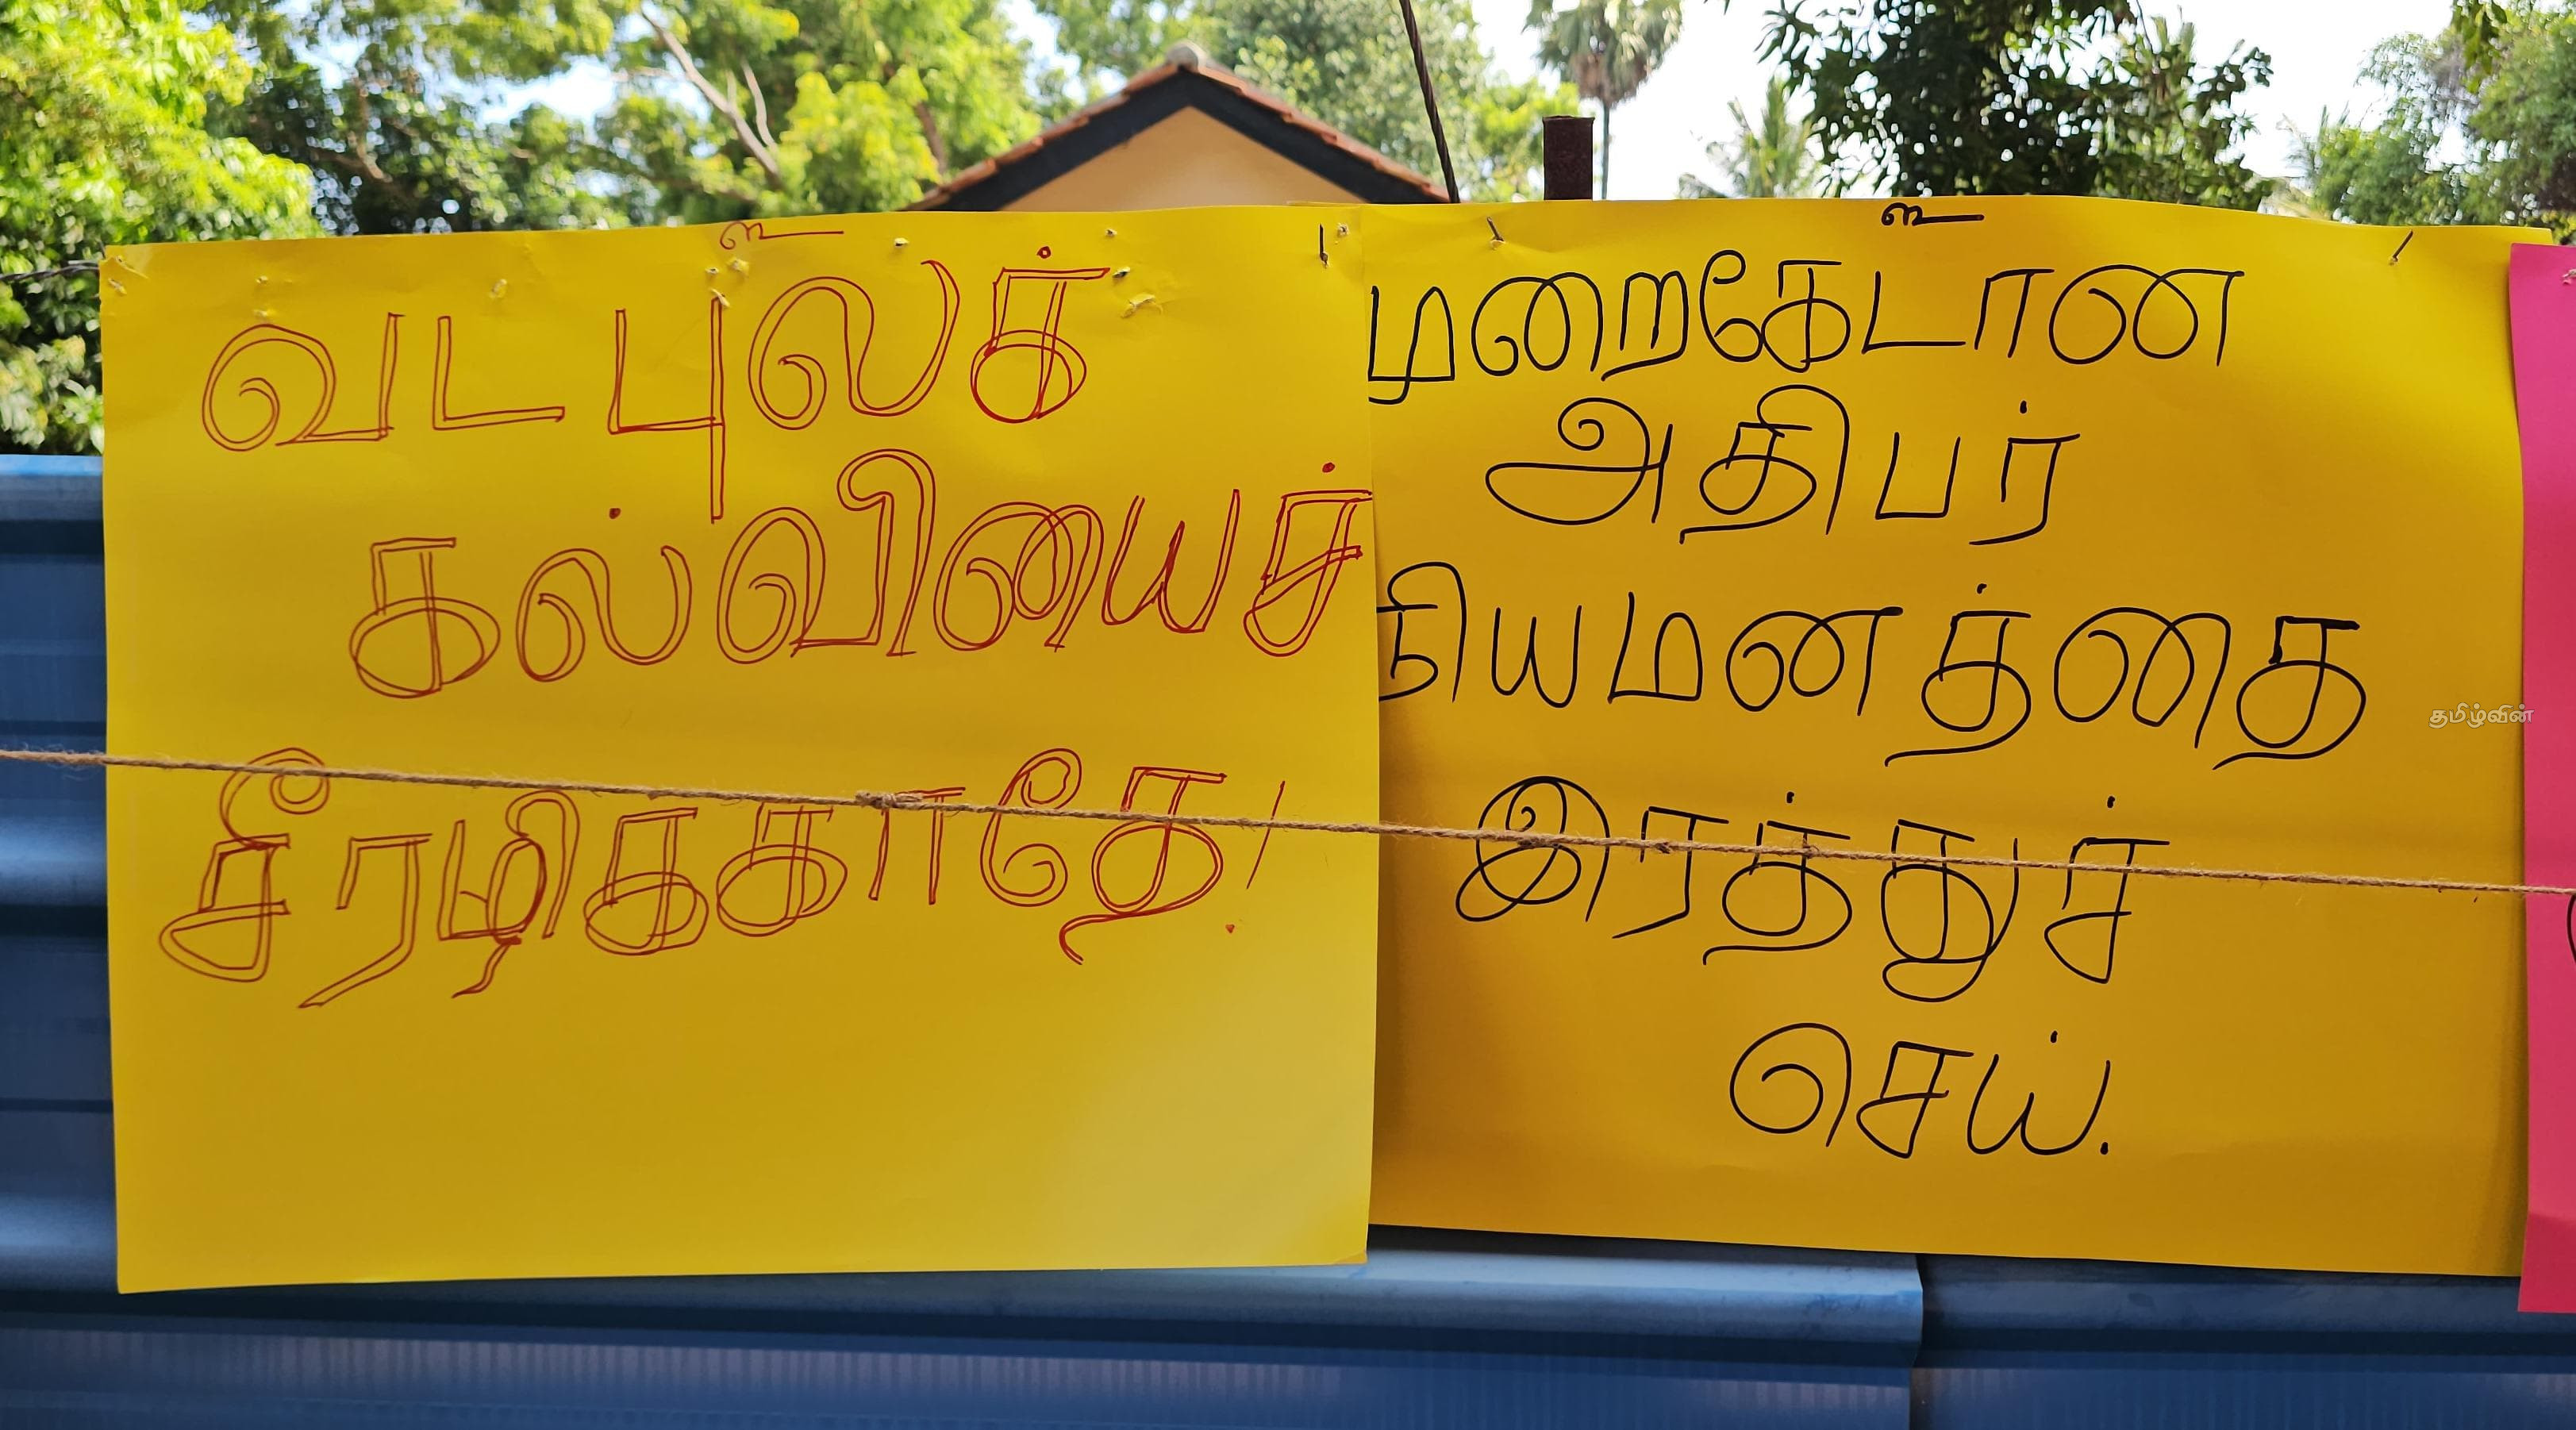 உ
வட புலக்
கல்வியைச்
சீரழிககாதே!
உ
முறைகேடான
அதிபர்
நியமனத்தை
இரத்துச்
செய்.
தமிழ்வின்